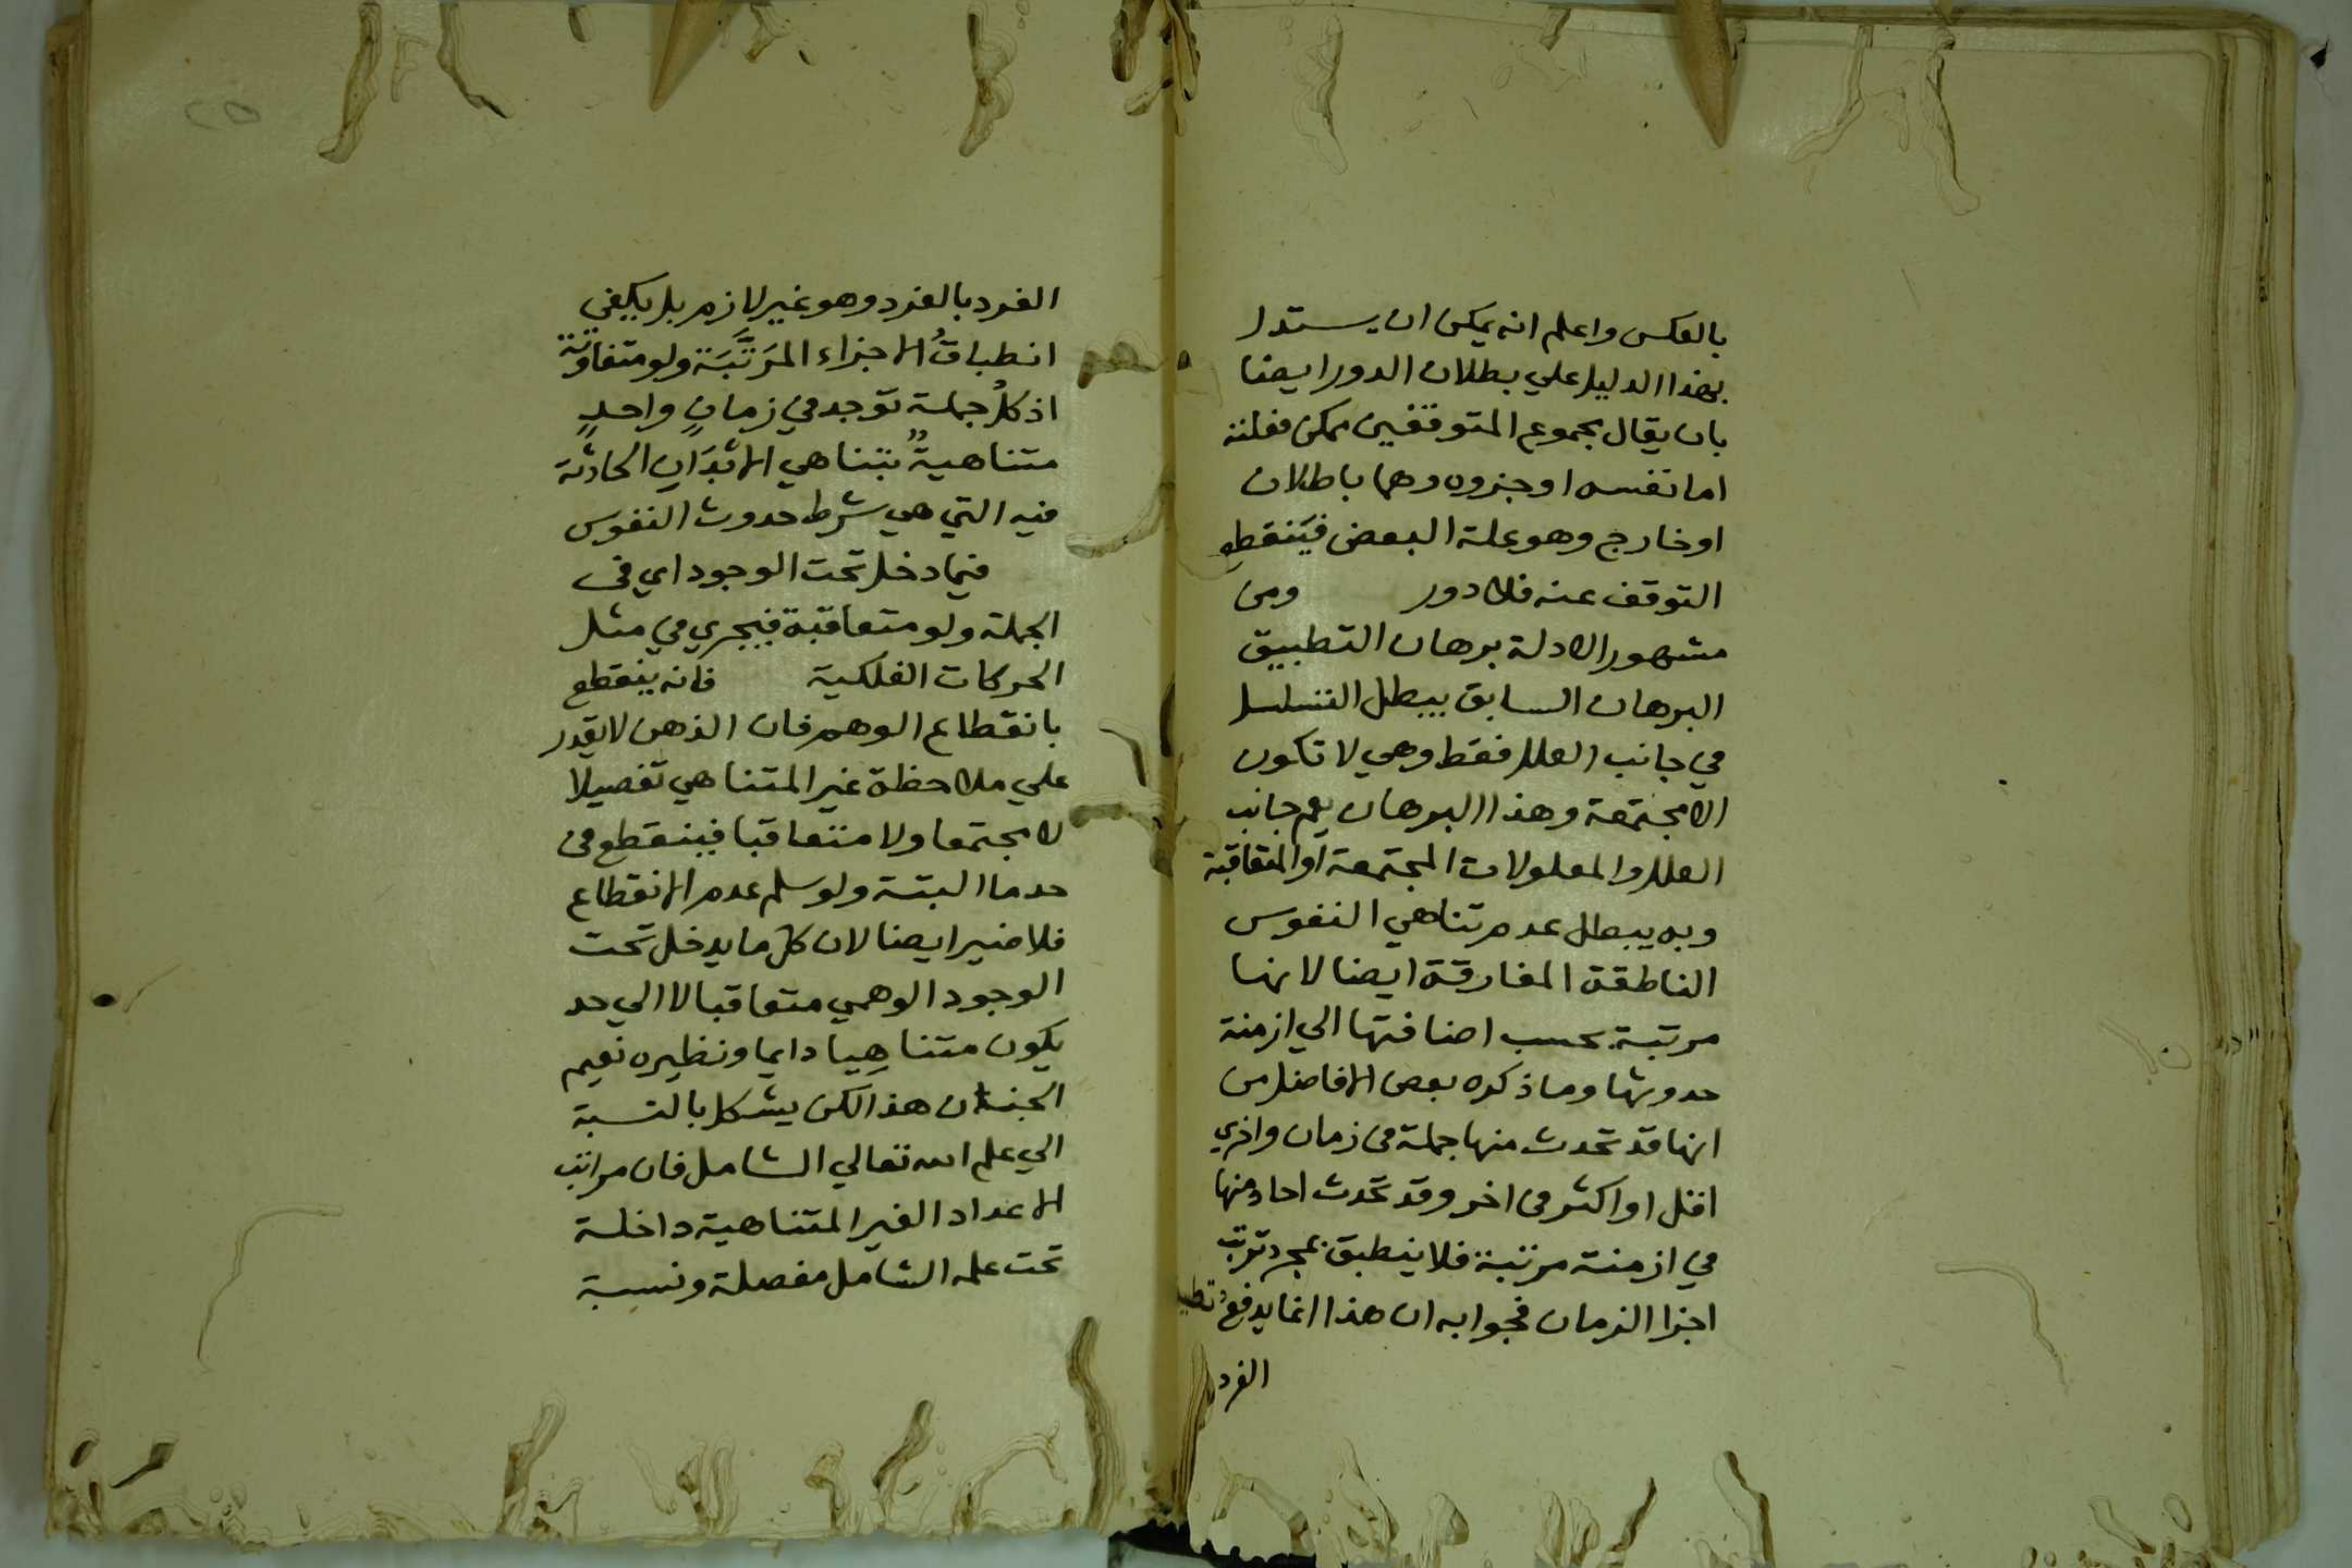 بالعكس واعلم انه يمكن ان يستدل
بهذا الدليل علي بطلان الدور ايضا
بان يقال مجموع المتوقفين ممكن فعلته
اما نفسه او جزوه وهما باطلان
او خارج وهو علة البعض فينقطع
التوقف عنه فلا دور ومن
مشهور الادلة برهان التطبيق
البرهان السابق يبطل التسلسل
في جانب العلل فقط وهي لا تكون
الا مجتمعة وهذا البرهان يعم جانب
العلل والمعلولات المجتمعة او المتعاقبة
وبه يبطل عدم تناهي النفوس
الناطقة المفارقة ايضا لانها
مرتبة بحسب اضافتها الي ازمنة
حدوثها وما ذكره بعض الافاضل من
انها قد تحدث منها جملة في زمان واخري
اقل او اكثر في اخر وقد تحدث احاد منها
في ازمنة مرتبة فلا ينطبق بمجرد ترتب
اجزا الزمان فجوابه ان هذا انما يدفع
الفرد
الفرد بالفرد وهو غير لازم بل يكفي
انطباقُ الاجزاء المرَتَّبَة ولو متفاوتة
اذ كلُ جملة توجد في زمانٍ واحدٍ
متناهيةٌ بتناهي الابْدَانِ الحادثة
فيه التي هي شرط حدوث النفوس
فيما دخل تحت الوجود اي في
الجملة ولو متعاقبة فيجري في مثل
الحركات الفلكية فانه ينقطع
بانقطاع الوهم فان الذهن لا يقدر
علي ملاحظة غير المتناهي تفصيلا
لا مجتمعا ولا متعاقبا فينقطع في
حد ما البتة ولو سلم عدم الانقطاع
فلا ضير ايضا لان كل ما يدخل تحت
الوجود الوهمي متعاقبا لا الي حد
يكون متناهِيا دايما ونظيره نعيم
الجنان هذا لكن يشكل بالنسبة
الي علم الله تعالي الشامل فان مراتب
الاعداد الغير المتناهية داخلة
تحت علمه الشامل مفصلة ونسبة